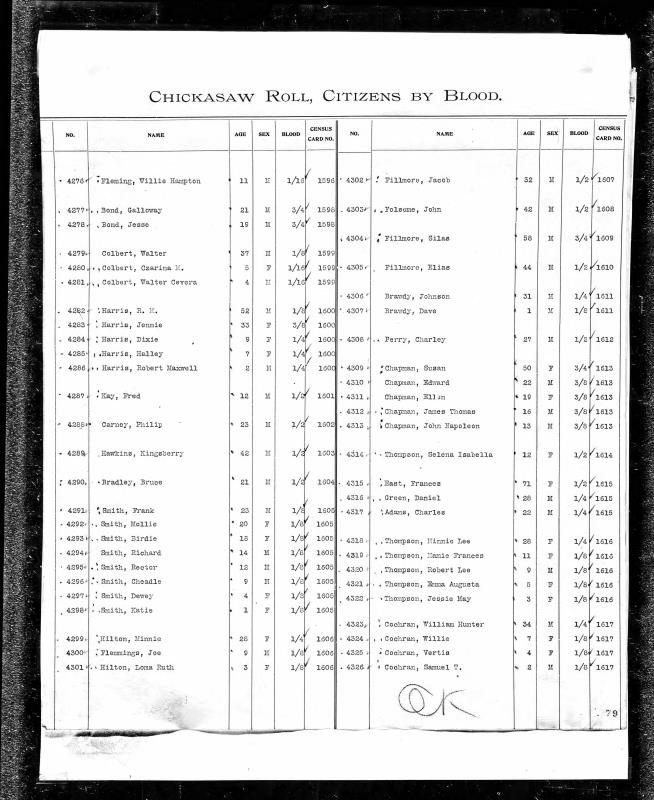 CHICKASAW ROLL, CITIZENS BY BLOOD.
NO. NAME AGE SEX BLOOD CENSUS CARD NO.
4276 Fleming, Willie Hampton 11 M 1/16 1596
4277 Bond, Galloway 21 M 3/4 1598
4278 Bond, Jesse 19 M 3/4 1598
4279 Colbert, Walter 37 M 1/8 1599
4280 Colbert, Czarina M. 5 F 1/16 1599
4281 Colbert, Walter Cevera 4 M 1/16 1599
4282 Harris, R. M. 52 M 1/8 1600
4283 Harris, Jennie 33 F 3/8 1600
4284 Harris, Dixie 9 F 1/4 1600
4285 Harris, Halley 7 F 1/4 1600
4286 Harris, Robert Maxwell 2 M 1/4 1600
4287 Kay, Fred 12 M 1/2 1601
4288 Carney, Philip 23 M 1/2 1602
4289 Hawkins, Kingsberry 42 M 1/2 1603
4290 Bradley, Bruce 21 M 1/2 1604
4291 Smith, Frank 23 M 1/8 1605
4292 Smith, Mollie 20 F 1/8 1605
4293 Smith, Birdie 18 F 1/8 1605
4294 Smith, Richard 14 M 1/8 1605
4295 Smith, Rector 12 M 1/8 1605
4296 Smith, Cheadle 9 M 1/8 1605
4297 Smith, Dewey 4 F 1/8 1605
4298 Smith, Katie 1 F 1/8 1605
4299 Hilton, Minnie 28 F 1/4 1606
4300 Flemmings, Joe 9 M 1/8 1606
4301 Hilton, Loma Ruth 3 F 1/8 1606
NO. NAME AGE SEX BLOOD CENSUS CARD NO.
4302 Fillmore, Jacob 32 M 1/2 1607
4303 Folsome, John 42 M 1/2 1608
4304 Fillmore, Silas 58 M 3/4 1609
4305 Fillmore, Elias 44 M 1/2 1610
4306 Brawdy, Johnson 31 M 1/4 1611
4307 Brawdy, Dave 1 M 1/8 1611
4308 Perry, Charley 27 M 1/2 1612
4309 Chapman, Susan 50 F 3/4 1613
4310 Chapman, Edward 22 M 3/8 1613
4311 Chapman, Ellen 19 F 3/8 1613
4312 Chapman, James Thomas 16 M 3/8 1613
4313 Chapman, John Napoleon 13 M 3/8 1613
4314 Thompson, Selena Isabella 12 F 1/2 1614
4315 East, Frances 71 F 1/2 1615
4316 Green, Daniel 28 M 1/4 1615
4317 Adams, Charles 22 M 1/4 1615
4318 Thompson, Minnie Lee 28 F 1/4 1616
4319 Thompson, Mamie Frances 11 F 1/8 1616
4320 Thompson, Robert Lee 9 M 1/8 1616
4321 Thompson, Emma Augusta 5 F 1/8 1616
4322 Thompson, Jessie May 3 F 1/8 1616
4323 Cochran, William Hunter 34 M 1/4 1617
4324 Cochran, Willie 7 F 1/8 1617
4325 Cochran, Vertis 4 F 1/8 1617
4326 Cochran, Samuel T. 2 M 1/8 1617
OK
79